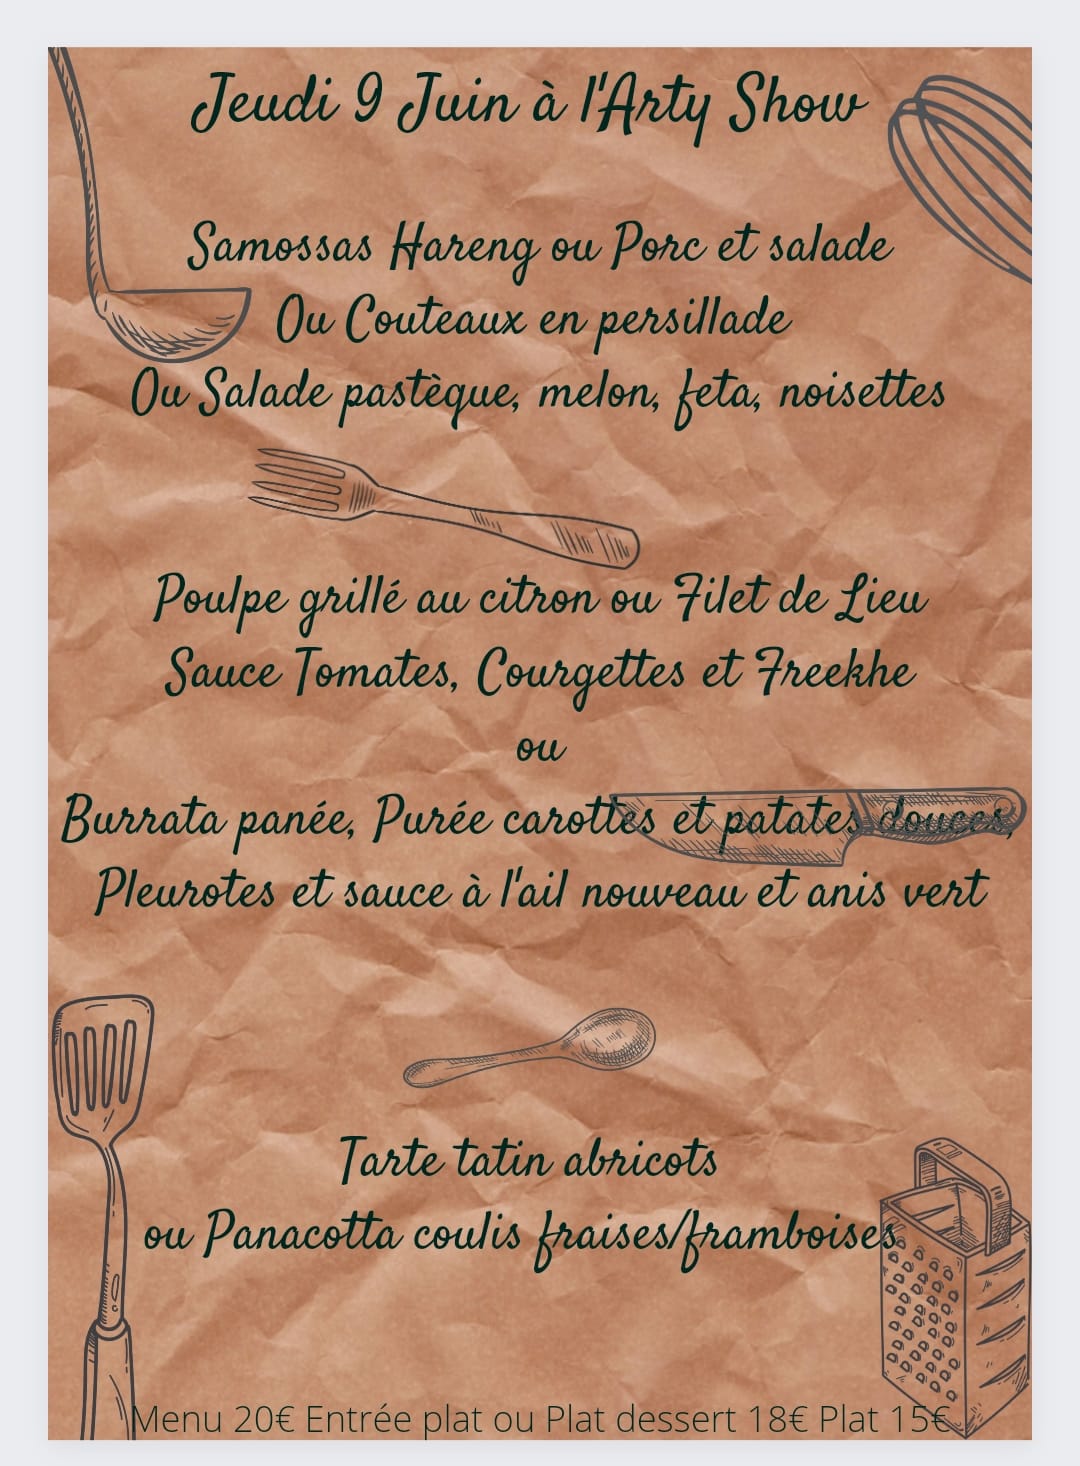 Jeudi 9 Juin à l'Arty Show
Samossas Hareng ou Porc et salade
Ou Couteaux en persillade
Ou Salade pastèque, melon, feta, noisettes
Poulpe grillé au citron ou Filet de Lieu
Sauce Tomates, Courgettes et Freekhe
ou
Burrata panée, Purée carottes et patates douces,
Pleurotes et sauce à l'ail nouveau et anis vert
Tarte tatin abricots
ou Panacotta coulis fraises/framboises
Menu 20€ Entrée plat ou Plat dessert 18€ Plat 15€